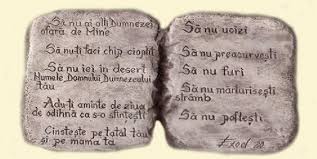 Să nu ai alți Dumnezei
afară de Mine
Să nu-ți faci chip cioplit
Să nu iei în deșert
Numele Domnului Dumnezeului
tău
Adu-ți aminte de ziua
de odihnă ca s-o sfințești
Cinstește pe tatăl tău
și pe mama ta
Să nu ucizi
Să nu preacurvești
Să nu furi
Să nu mărturisești
strâmb
Să nu poftești
Exod 20